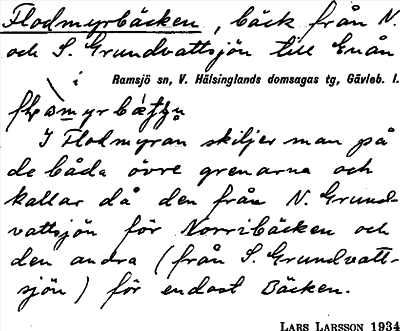 Flodmyrbäcken, bäck från N.
och S. Grundvattsjön till Enån
i
Ramsjö sn, V. Hälsinglands domsagas tg, Gävleb. l.
I Flodmyran skiljer man på
de båda övre grenarna och
kallar då den från N. Grund-
vattsjön för Norribäcken och
den andra (från S. Grundvatt-
sjön) för endast Bäcken.
LARS LARSSON 1934